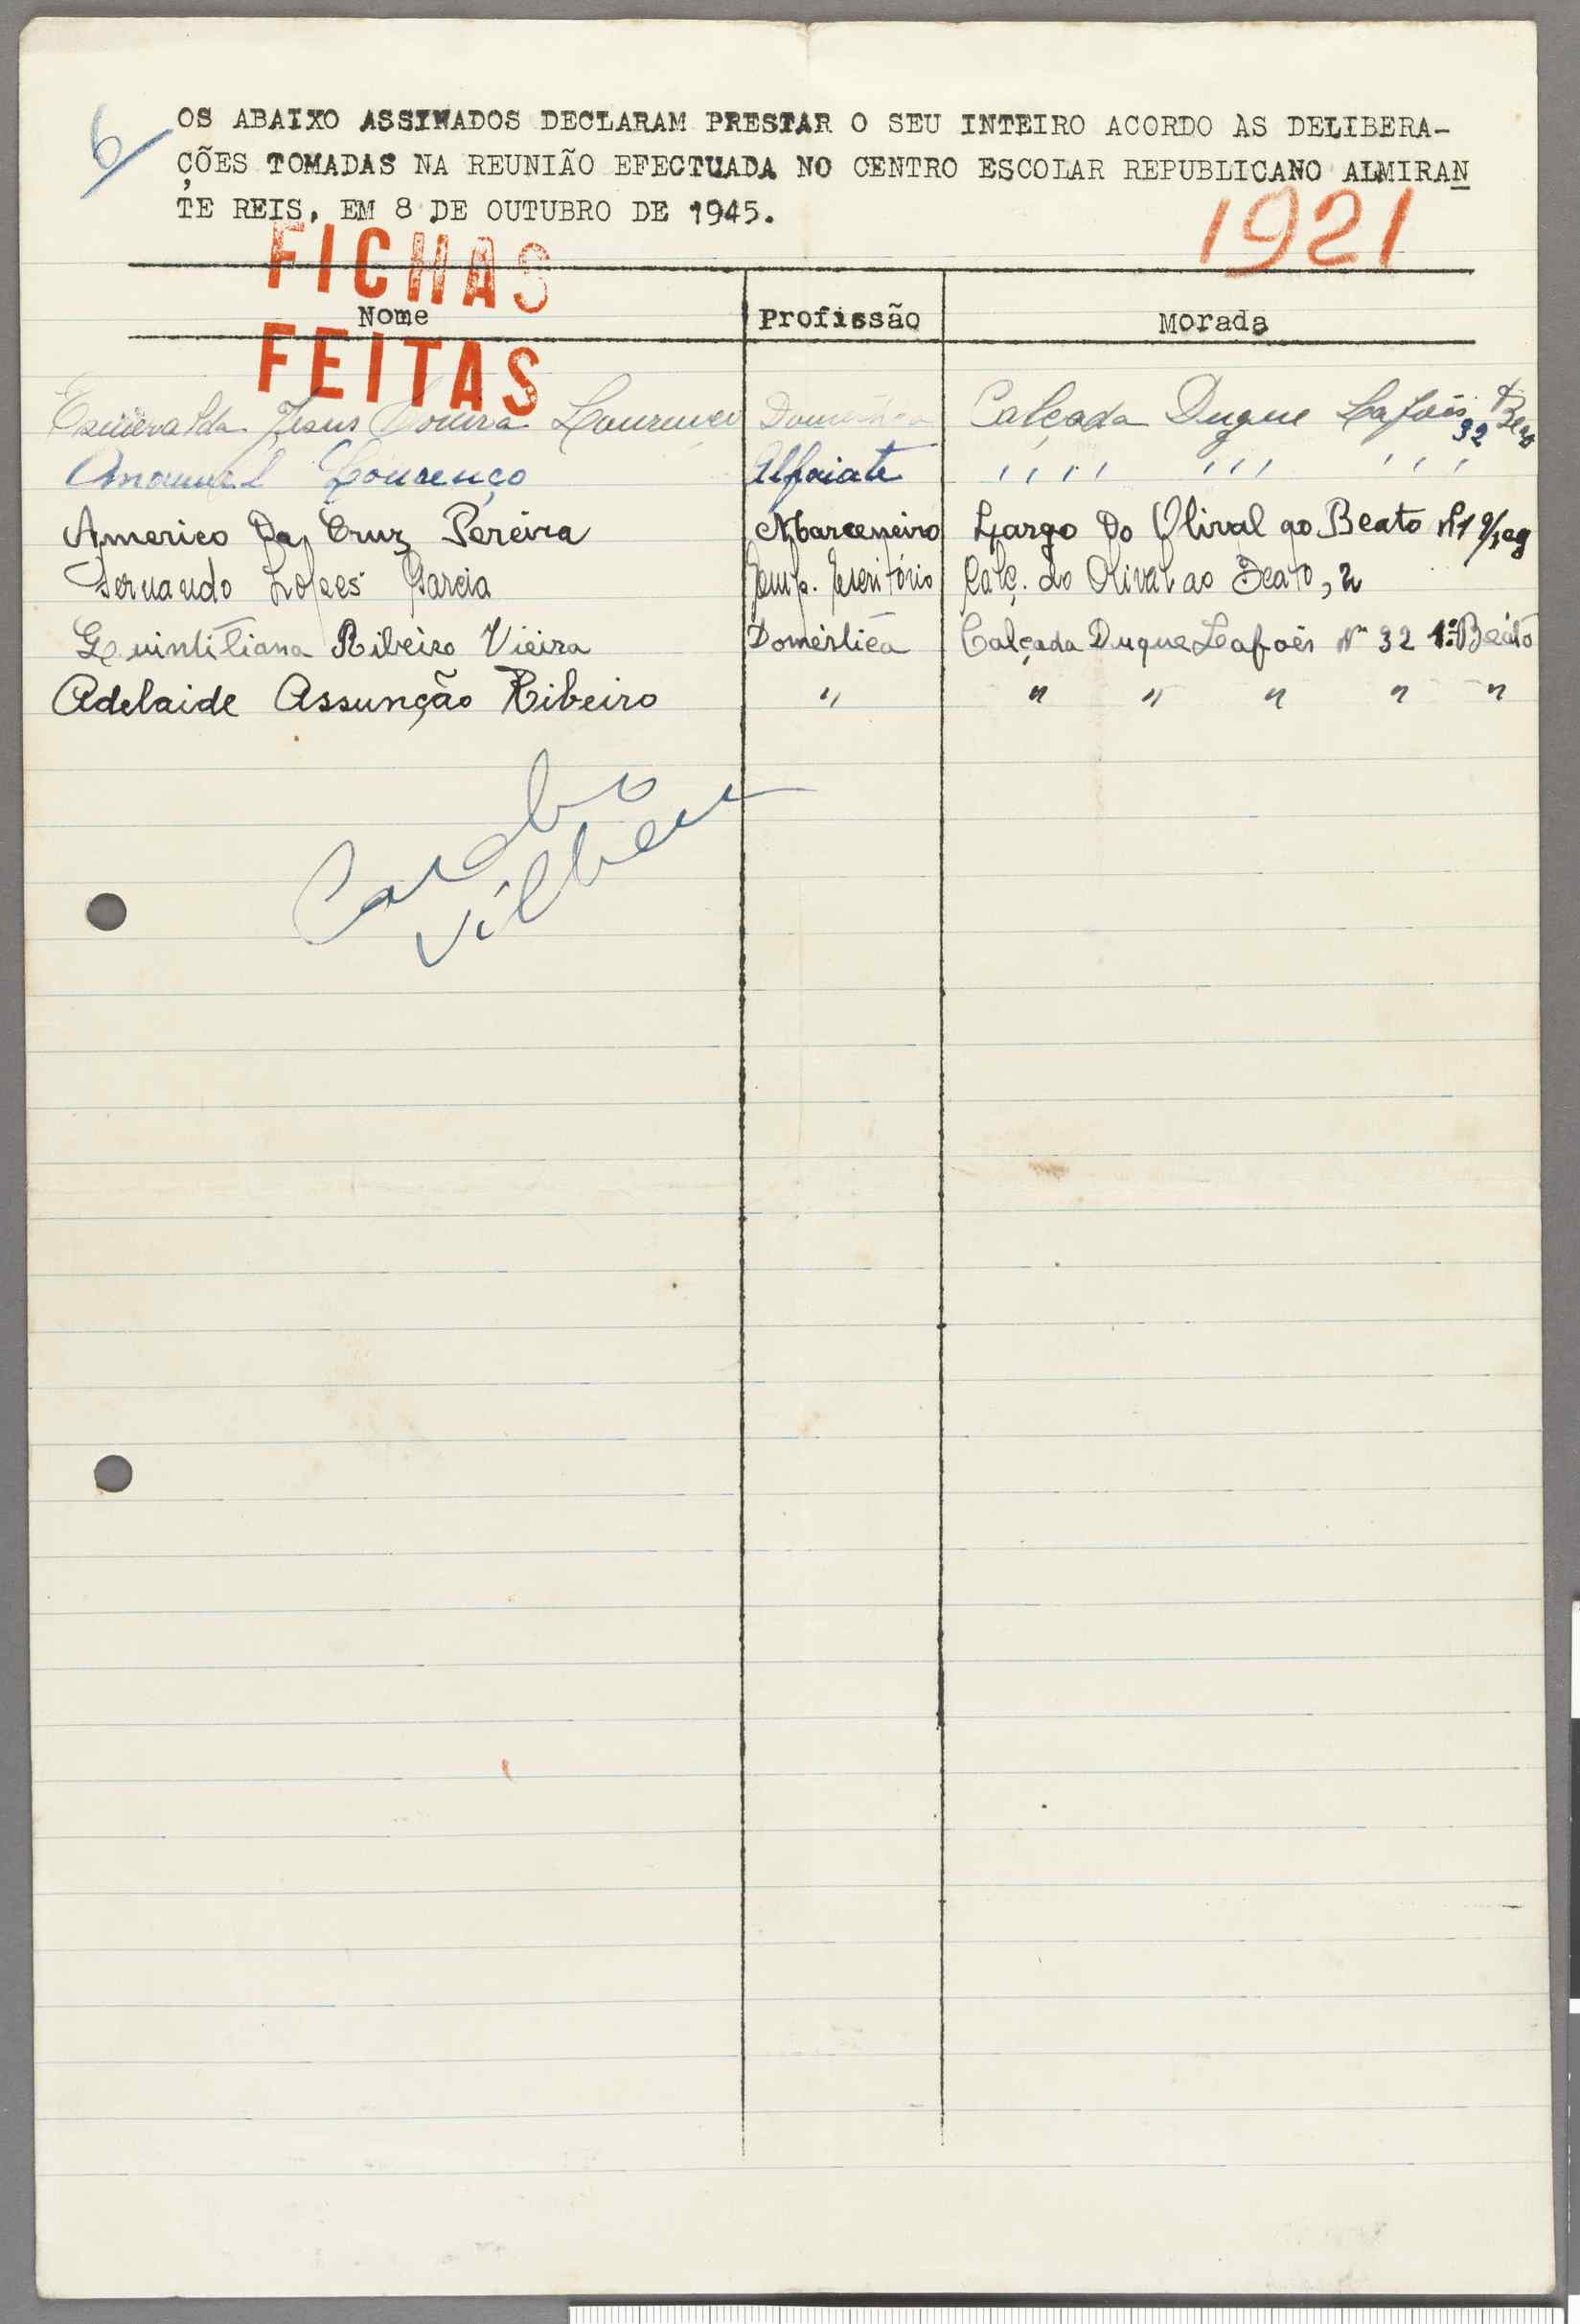 6
OS ABAIXO ASSINADOS DECLARAM PRESTAR O SEU INTEIRO ACORDO ÀS DELIBERA-
ÇÕES TOMADAS NA REUNIÃO EFECTUADA NO CENTRO ESCOLAR REPUBLICANO ALMIRAN
TE REIS, EM 8 DE OUTUBRO DE 1945.
1921
FICHAS
Nome Profissão Morada
FEITAS
Esmeralda Jesus Lourenço Domestica Calçada Duque Lafões 32
Manuel Lourenço Alfaiate ,, ,, ,, ,,
Americo Da Cruz Pereira Marceneiro Largo Do Olival ao Beato Nº1
Fernando Lopes Garcia Emp. Escritório Calç. do Olival ao Beato, 2
Quintiliana Ribeiro Vieira Doméstica Calçada Duque Lafoēs Nº 32 1º Beato
Adelaide Assunção Ribeiro " " " " " "